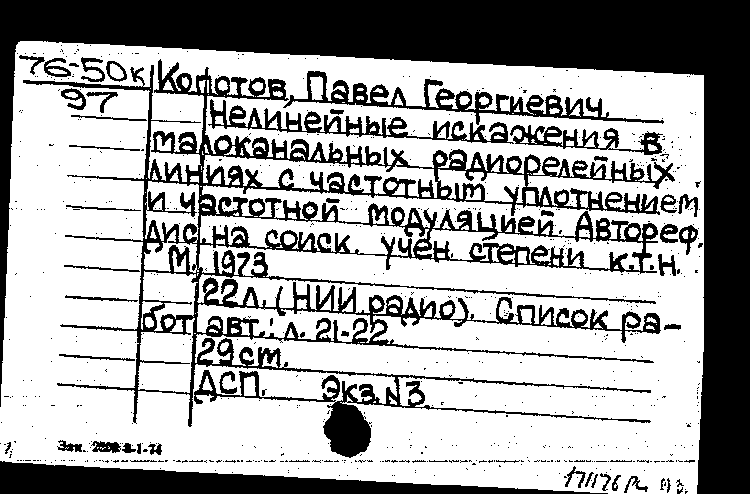 76-50к
97
Копотов, Павел Георгиевич.
Нелинейные искажения в
малоканальных радиорелейных
линиях с частотным уплотнением
и частотной модуляцией. Автореф.
дис. на соиск. учен. степени к.т.н.
М., 1973
22л. (НИИ радио). Список ра-
бот авт.: л. 21-22.
29 ст.
ДСП. Экз. №3
Зак. 8-1-74